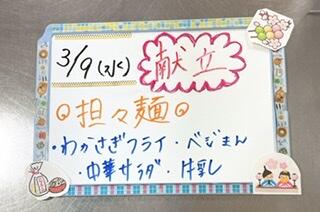 3/9(水) 献立
担々麺
・わかさぎフライ・ベジまん
・中華サラダ・牛乳